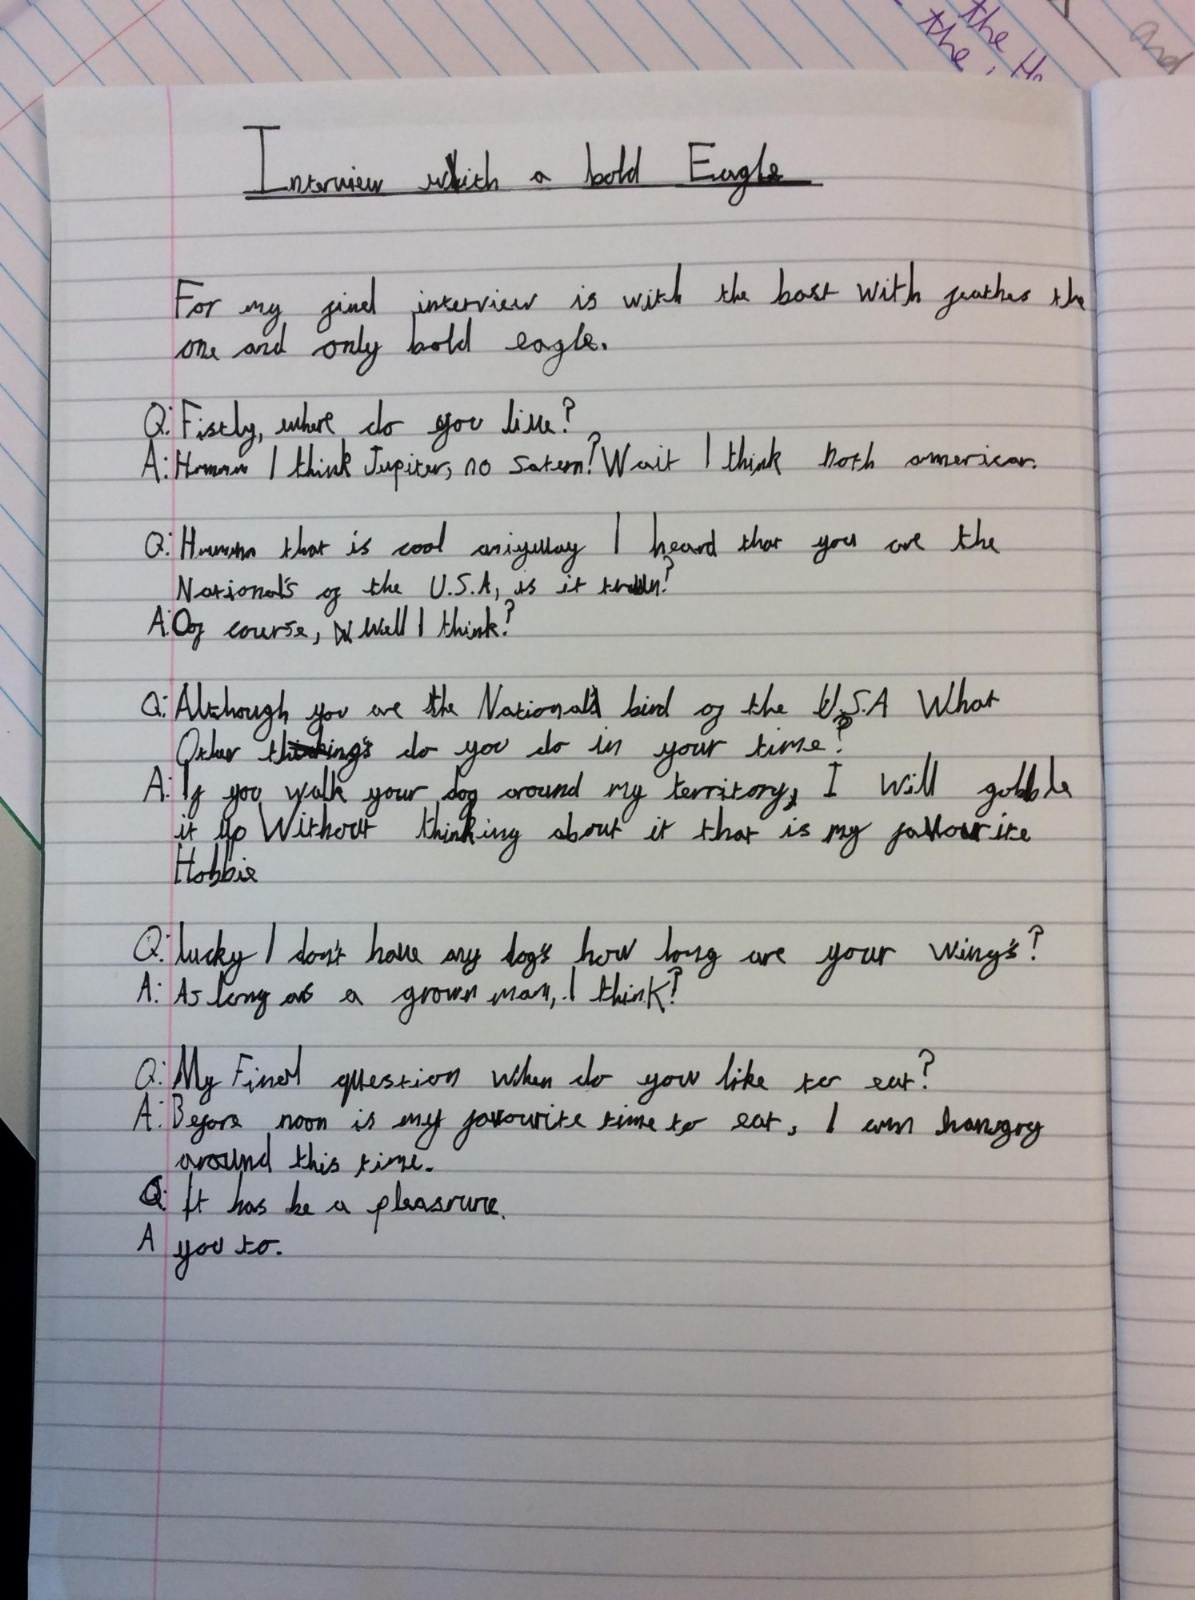 the
the, Ho
and
Interview with a bold Eagle
For my final interview is with the bast with feathes the
one and only bold eagle.
Q: Fistly, where do you live?
A: Hmmm I think Jupiter, no Satern? Wait I think North american.
Q: Hmmmm that is cool anyway I heard that you are the
National's of the U.S.A, is it
A: Of course, Well I think?
Q: Although you are the National's bird of the U.S.A What
Other things do you do in your time?
A: If you walk your dog around my territory, I will gobble
it up Without thinking about it that is my favourite
Hobbie
Q: lucky I don't have any dog's how long are your wing's?
A: As long as a grown man, I think?
Q: My Final question when do you like to eat?
A: Before noon is my favourite time to eat, I am hangry
around this time.
Q: It has be a pleasrure.
A you to.